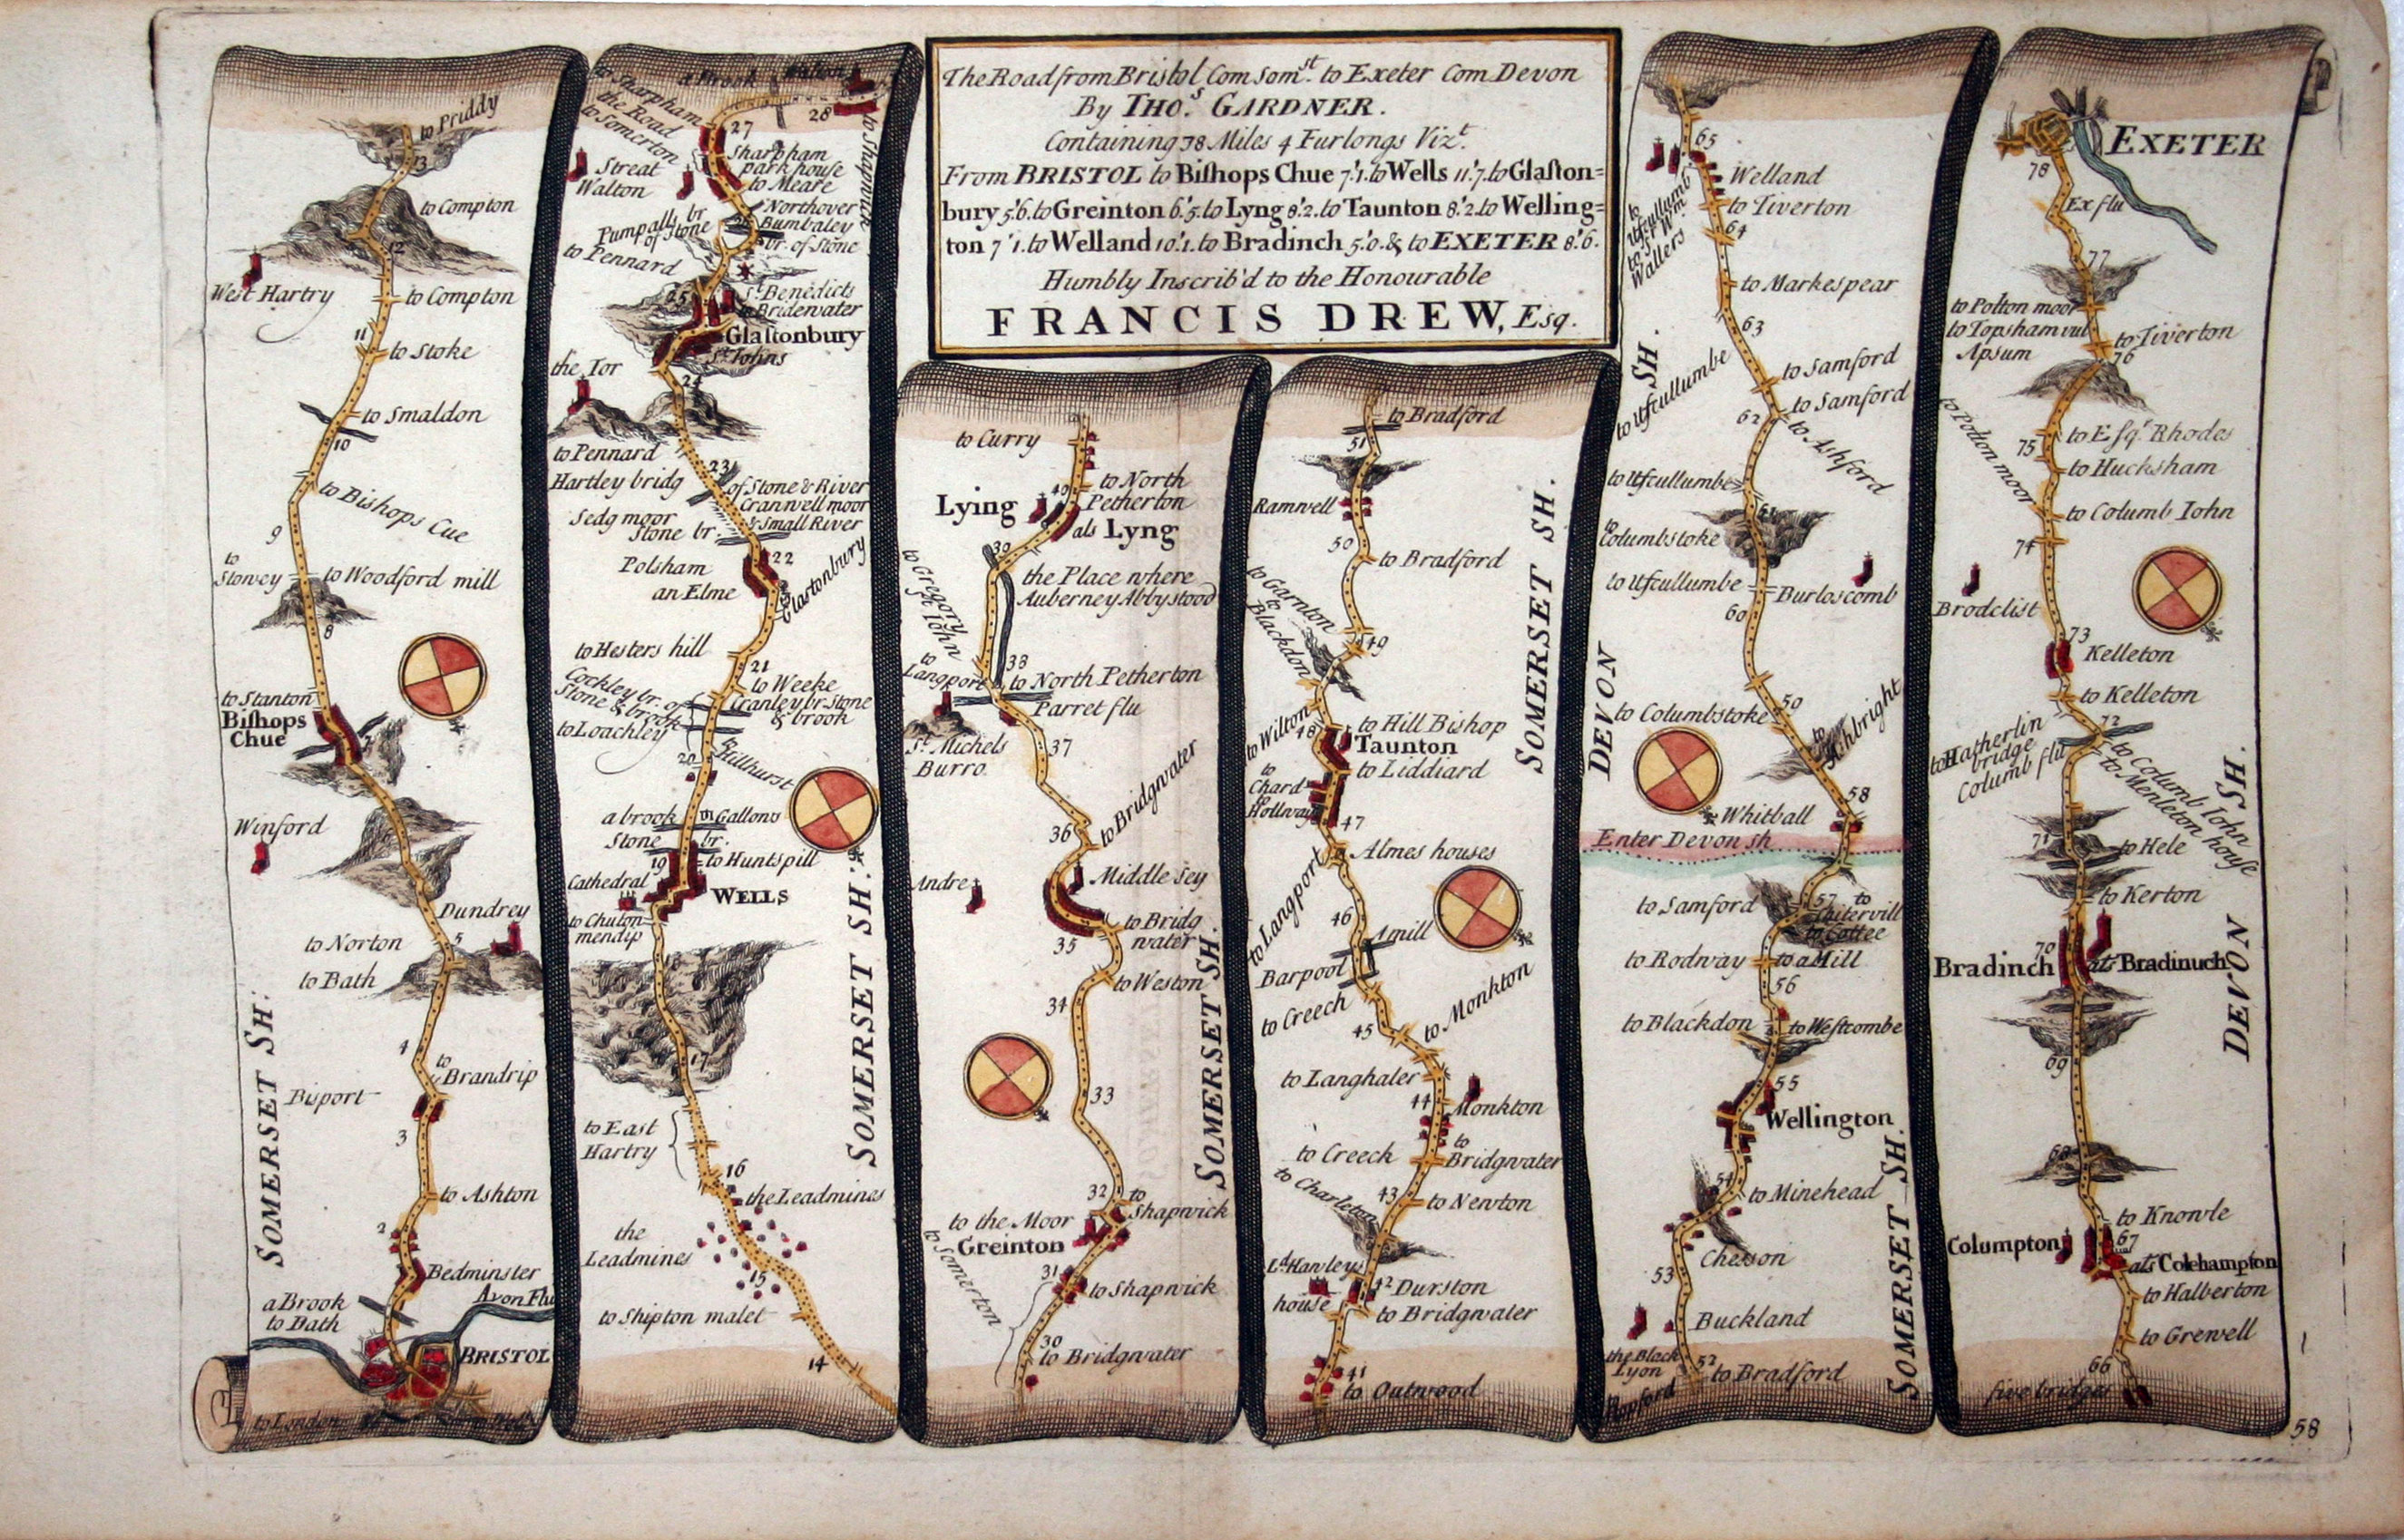 The Road from Bristol Com Som.st to Exeter Com Devon
By THO.S GARDNER.
Containing 78 Miles 4 Furlongs Viz.t
From BRISTOL to Bishops Chue 7'.1. to Wells 11'.7. to Glaston=
bury 5'.6. to Greinton 6'.5. to Lyng 8'.2. to Taunton 8'.2. to Welling=
ton 7'.1. to Welland 10'.1. to Bradinch 5'.0. & to EXETER 8'.6.
Humbly Inscrib'd to the Honourable
FRANCIS DREW, Esq.
to Priddy
13
to Compton
12
West Hartry
to Compton
11
to Stoke
to Smaldon
10
to Bishops Cue
9
to Stowey
to Woodford mill
8
to Stanton
Bishops
Chue
7
Winford
6
Dundrey
5
to Norton
to Bath
4
to Brandrip
Bisport
3
to Ashton
2
Bedminster
1
a Brook
to Bath
Avon Flu
BRISTOL
to London
SOMERSET SH.
to Sharpham
the Road
to Somerton
a Brook
Walton
28
to Shapwick
27
Streat
Walton
Sharpham
park house
to Meare
Pumpalls br.
of Stone
to Pennard
26
Northover
Bumbaley
br. of Stone
25
St. Benedicts
to Bridgwater
Glastonbury
St. Iohns
the Tor
24
to Pennard
Hartley bridg
23
of Stone & River
Cranwell moor
& Small River
Sedg moor
Stone br.
22
Polsham
an Elme
to Glastonbury
to Hesters hill
21
to Weeke
Cockley br. of
Stone & brook
to Loachley
Cranley br. Stone
& brook
20
to Hillhurst
a brook
Gallows
Stone br.
19
to Huntspill
Cathedral
WELLS
to Chuton
mendip
17
to East
Hartry
16
the Leadmines
the
Leadmines
15
to Shipton malet
14
SOMERSET SH.
to Curry
40
to North
Petherton
Lying
als Lyng
39
to Gregory
St. Iohn
the Place where
Auberney Abby stood
38
to Langport
to North Petherton
Parret flu
St. Michels
Burro.
37
to Bridgwater
36
Andre
Middle Sey
35
to Bridg
water
to Weston
34
33
32
to Shapwick
to the Moor
Greinton
31
to Shapwick
to Somerton
30
to Bridgwater
SOMERSET SH.
to Bradford
51
Ramwell
50
to Bradford
to Garnton
to Blackdon
49
to Wilton
48
to Hill Bishop
Taunton
to Liddiard
to Chard
to Hollway
47
Almes houses
to Langport
46
A mill
Barpool
to Creech
45
to Monkton
to Langhaler
44
Monkton
to Bridgwater
to Creech
to Charleton
43
to Newton
Ld. Hawleys
house
42
Durston
to Bridgwater
41
to Outwood
SOMERSET SH.
65
to Ufcullumb
to Sr. Wm.
Wallers
Welland
to Tiverton
64
to Markespear
63
to Ufcullumbe
to Samford
62
to Samford
to Ashford
to Ufcullumbe
61
to Columbstoke
to Ufcullumbe
Burloscomb
60
59
to Columbstoke
to Ashbright
58
Whitball
Enter Devon sh
57
to Samford
to Cottee
to Rodway
to a Mill
56
to Blackdon
to Westcombe
55
Wellington
54
to Minehead
Chesson
53
Buckland
the Black
Lyon
52
to Bradford
DEVON SH.
SOMERSET SH.
EXETER
78
Ex flu
77
to Polton moor
to Topsham vul
Apsum
to Tiverton
76
to Polton moor
75
to Esqr. Rhodes
to Hucksham
to Columb Iohn
74
Brodclist
73
Kelleton
to Kelleton
to Hatherlin
bridge
Columb flu
72
to Columb Iohn
to Menleton house
71
to Hele
to Kerton
70
Bradinch
als Bradinuch
69
68
to Knowle
Columpton
67
als Colehampton
to Halberton
to Grewell
66
five bridges
DEVON SH.
58